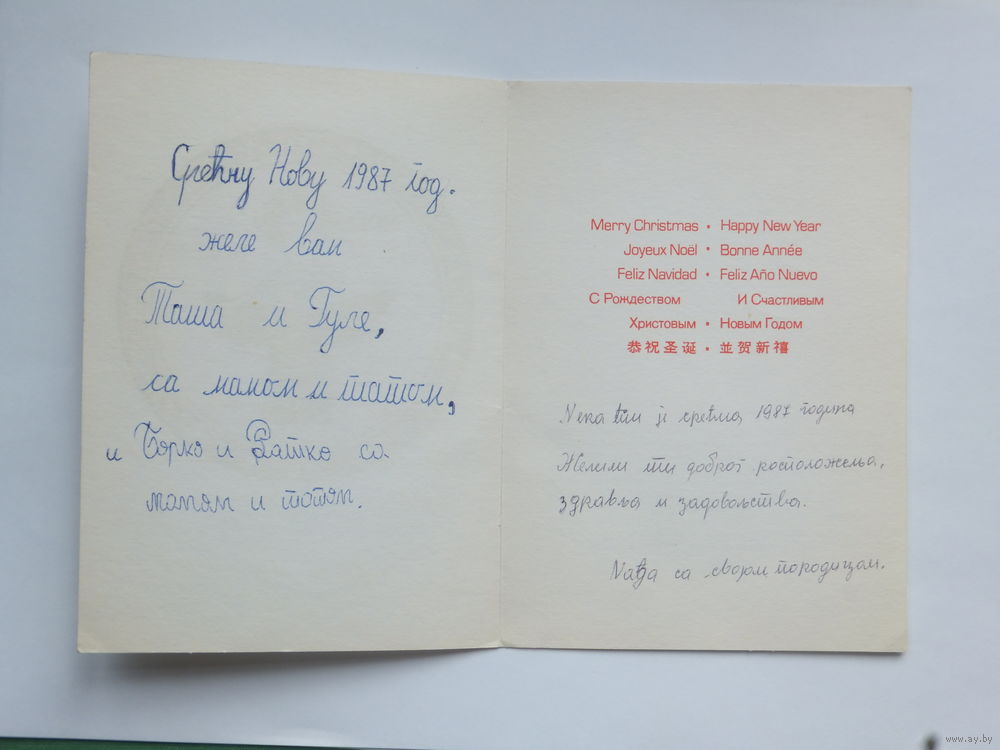 Срећну Нову 1987 год.
желе вам
Таша и Гуле,
са мамом и татом,
и Борко и Ратко са
мамом и татом.
Merry Christmas • Happy New Year
Joyeux Noël • Bonne Année
Feliz Navidad • Feliz Año Nuevo
С Рождеством И Счастливым
Христовым • Новым Годом
恭祝圣诞 • 並贺新禧
Neка ти је срећна 1987 година
Желим ти доброг расположења,
здравља и задовољства.
Nађа са својом породицом.
www.ay.by